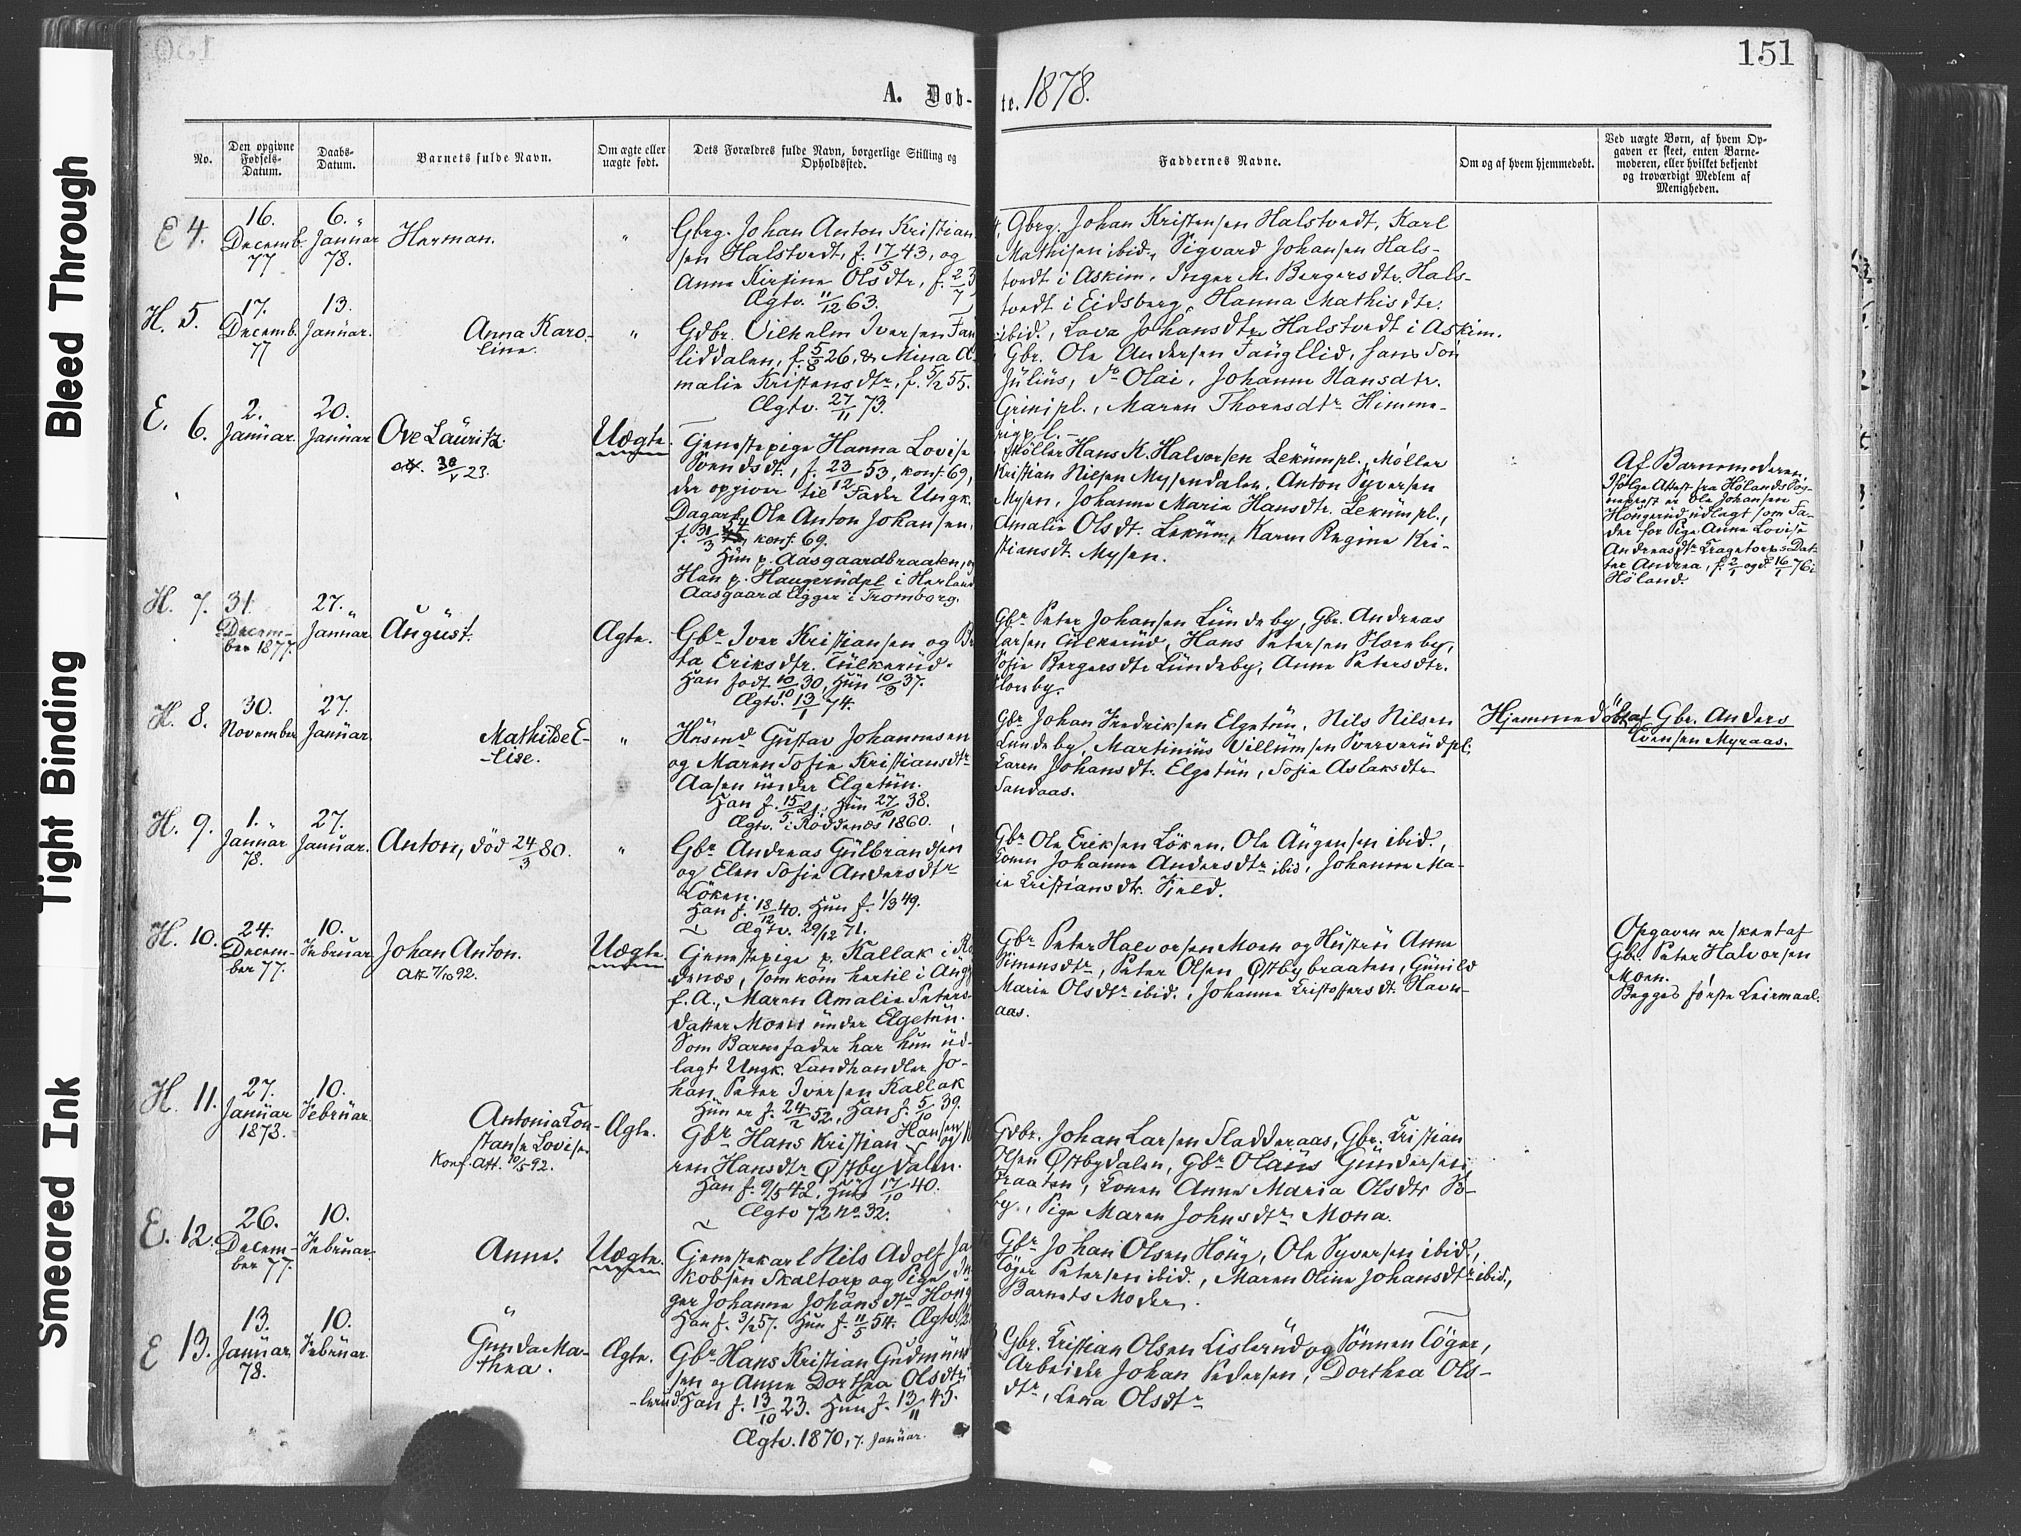 151
A. Døb-
te. 1878.
No.
Den opgivne
Fødsels-
Datum.
Daabs-
Datum.
Barnets fulde Navn.
Om ægte eller
uægte født.
Dets Forældres fulde Navn, borgerlige Stilling og
Opholdssted.
Faddernes Navne.
Om og af hvem hjemmedøbt.
Ved uægte Børn, af hvem Op-
gaven er skeet, enten Barne-
moderen, eller hvilket bekjendt
og troværdigt Medlem af
Menigheden.
E 4.
16.
Decemb.
77
6.
Januar
78.
Herman.
"
Gbrg. Johan Anton Kristian
sen Halstvedt, f. 17/5 43, og
Anne Kirstine Olsdtr, f. 2/7 3
Ægtv. 11/12 63.
Gbrg. Johan Kristensen Halstvedt, Karl
Mathisen ibid., Sigvard Johansen Hals-
tvedt i Askim, Inger M. Bergersdtr. Hals-
tvedt i Eidsberg, Hanna Mathisdtr.
ibid., Lava Johansdtr Halstvedt i Askim.
H. 5.
17.
Decemb.
77
13.
Januar.
Anna Karo-
line.
"
Gdbr. Vilhelm Iversen Fau
liddalen, f. 5/8 26, & Mina A-
malie Kristensdtr, f. 5/2 55.
Ægtv. 27/11 73.
Gbr. Ole Andersen Faugllid, hans Søn
Julius, do Olai, Johanne Hansdtr.
Grinipl., Maren Thoresdtr Himme-
rigpl.
E. 6.
2.
Januar.
20.
Januar
Ove Lauritz.
att. 30/5 23.
Uægte.
Tjenestepige Hanna Lovise
Svendsdt., f. 23/12 53, konf. 69,
der opgiver til Fader Ungk.
Dagarb. Ole Anton Johansen,
f. 31/3 54, konf. 69.
Hun p. Aasgaardbraaten, og
Han p. Haugerudpl i Herland
Aasgaard ligger i Tromborg.
Møller Hans K. Halvorsen Lekumpl., Møller
Kristian Nilsen Mysendalen, Anton Syversen
Mysen, Johanne Marie Hansdtr. Lekumpl.,
Amalie Olsdt. Lekum, Karen Regine Kri-
stiansdt. Mysen.
Af Barnemoderen.
Ifølge Attest fra Hølands Sog-
neprest er Ole Johansen
Hougerud udlagt som Fa-
der for Pige Anne Lovise
Andreasdtr Tragetorps Dat-
ter Andrea, f. 2/1 og d. 16/1 76 i
Høland.
H. 7.
31.
Decem-
ber 1877.
27.
Januar
August.
Ægte.
Gbr Iver Kristiansen og Be
ta Eriksdtr. Tulkerud.
Han født 10/10 30, Hun 10/3 37.
Ægtv. 13/1 74.
Gbr Peter Johansen Lundeby, Gbr. Andreas
Larsen Tulkerud, Hans Petersen Floreby,
Sofie Bergersdtr Lundeby, Anne Petersdtr.
Floreby.
H. 8.
30.
November
27.
Januar
Mathilde E-
-lise.
"
Husmd Gustav Johannesen
og Maren Sofie Kristiansdtr
Aasen under Elgetun.
Han f. 15/5 21, Hun 27/10 38.
Ægtv. i Røddenæs 1860.
Gbr Johan Fredriksen Elgetun, Nils Nilsen
Lundeby, Martinius Villumsen Sververudpl.
Karen Johansdtr. Elgetun, Sofie Aslaksdtr
Sandaas.
Hjemmedøbt af Gbr. Anders
Evensen Myraas.
H. 9.
1.
Januar
78.
27.
Januar.
Anton, død 24/3 80.
"
Gbr Andreas Gulbrandsen
og Elen Sofie Andersdtr
Løken.
Han f. 18/12 40. Hun f. 1/3 49.
Ægtv. 29/12 71.
Gbr Ole Eriksen Løken, Ole Augensen ibid.,
Konen Johanne Andersdtr ibid, Johanne Ma-
rie Kristiansdtr. Fjeld.
H. 10.
24.
Decem-
ber 77.
10.
Februar
Johan Anton.
Att. 7/10 92.
Uægte.
Tjenestepige p. Kallak i Rø
denæs, som kom hertil i Aug
f. A., Maren Amalie Peters-
datter Moen under Elgetun.
Som Barnefader har hun ud-
lagt Ungk. Landhandler Jo-
han Peter Iversen Kallak
Hun er f. 24/2 52, Han f. 5/10 39.
Gbr Peter Halvorsen Moen og Hustru Anne
Simensdtr, Peter Olsen Østbybraaten, Gunild
Marie Olsdtr ibid., Johanne Kristoffersdt. Havn-
aas.
Opgaven er skeet af
Gbr. Peter Halvorsen
Moen.
Begges første Leiermaal.
H. 11.
27.
Januar
1878.
10.
Februar
Antonia Kon-
stanse Lovise.
Konf. att. 10/5 92.
Ægte.
Gbr Hans Kristian Hansen og
ren Hansdtr Østbydalen.
Han f. 9/5 42, Hun 17/10 40.
Ægtv 72 No 32.
Gdbr. Johan Larsen Sladderaas, Gbr. Kristian
Olsen Østbydalen, Gbr Olaus Gundersen
Braaten, Konen Anne Maria Olsdtr Bø-
by., Pige Maren Johnsdtr Mona.
E. 12.
26.
Decem-
ber 77.
10.
Februar.
Anne.
Uægte.
Tjenestekarl Nils Adolf Ja
kobsen Skaltorp og Pige In
ger Johanne Johansdtr Houg
Han f. 3/2 57. Hun f. 11/5 54. Ægtv
Gbr Johan Olsen Houg, Ole Syversen ibid.,
Tøger Petersen ibid., Maren Oline Johansdtr ibid.,
Barnets Moder.
E 13.
13.
Januar
78.
10.
Februar.
"
Gunda Ma-
thea.
Ægte.
Gbr Hans Kristian Gudmund
sen og Anne Dorthea Olsdtr
-lerud Han f. 13/10 23. Hun f. 13/11 45.
Ægtv. 1870, 7. Januar.
Gbr. Kristian Olsen Lislerud og Sønnen Tøger,
Arbeider Johan Pedersen, Dorthea Ols-
dtr, Lena Olsdtr
Bleed Through
Tight Binding
Smeared Ink